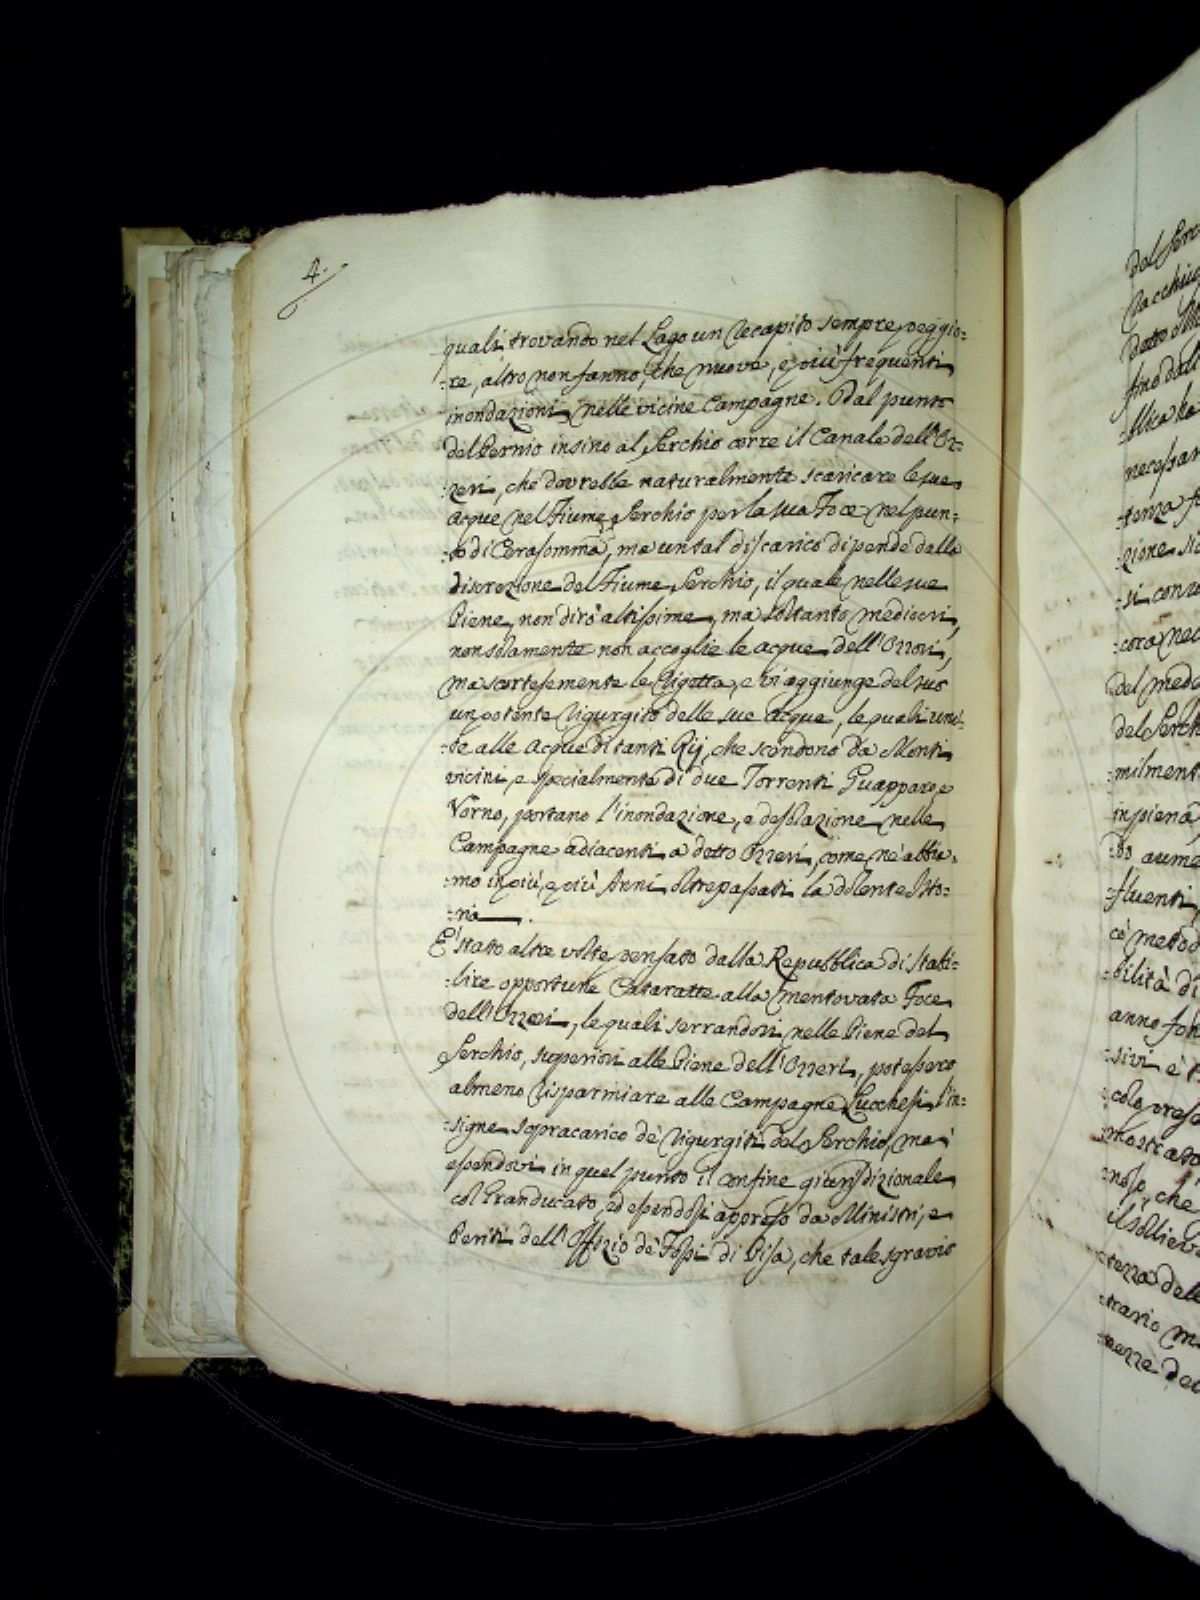 4.
quali trovando nel Lago un recapito sempre peggio-
:re, altro non fanno, che nuove, e più frequenti
inondazioni nelle vicine Campagne. Dal punto
del Pernio insino al Serchio corre il Canale dell'Oz-
:zeri, che dovrebbe naturalmente scaricare le sue
Acque nel Fiume Serchio per la sua Foce nel pun:
:to di Cerasomma, ma un tal discarico dipende dalla
discrezione del Fiume Serchio, il quale nelle sue
Piene, non dirò altissime, ma soltanto mediocri,
non solamente non accoglie le acque dell'Ozzori,
ma scortesemente le rigetta, e vi aggiunge del suo
un potente rigurgito delle sue acque, le quali uni-
:te alle acque di tanti Rij, che scendono da Monti
vicini, e specialmente di due Torrenti Guappare, e
Vorno, portano l'inondazione, e desolazione nelle
Campagne adiacenti a detto Ozzeri, come ne abbia-
:mo in più, e più Anni oltrepassati la dolente Isto-
:ria.
E' stato altre volte pensato dalla Repubblica di stabi-
:lire opportune Cataratte alla mentovata Foce
dell'Ozzeri, le quali serrandosi nelle Piene del
Serchio, superiori alle Piene dell'Ozzeri, potessero
almeno risparmiare alle Campagne Lucchesi l'in-
:signe sopracarico de' rigurgiti del Serchio, ma
essendovi in quel punto il confine giurisdizionale
col Granducato, ed essendosi appreso da Ministri, e
Periti dell'Offizio de' Fossi di Pisa, che tale sgravio
del Serc
detto
fino dal
:blica ha
necessar
:tenza
:zione
:si conv
:cora nec
del mede
del Serch
:milment
in piena
:do aume
:fluenti,
ce metod
:bilità di
anno
:sivi è
:cole prese
mostrato
:noso, che
il sollievo
:terza delle
:trario m